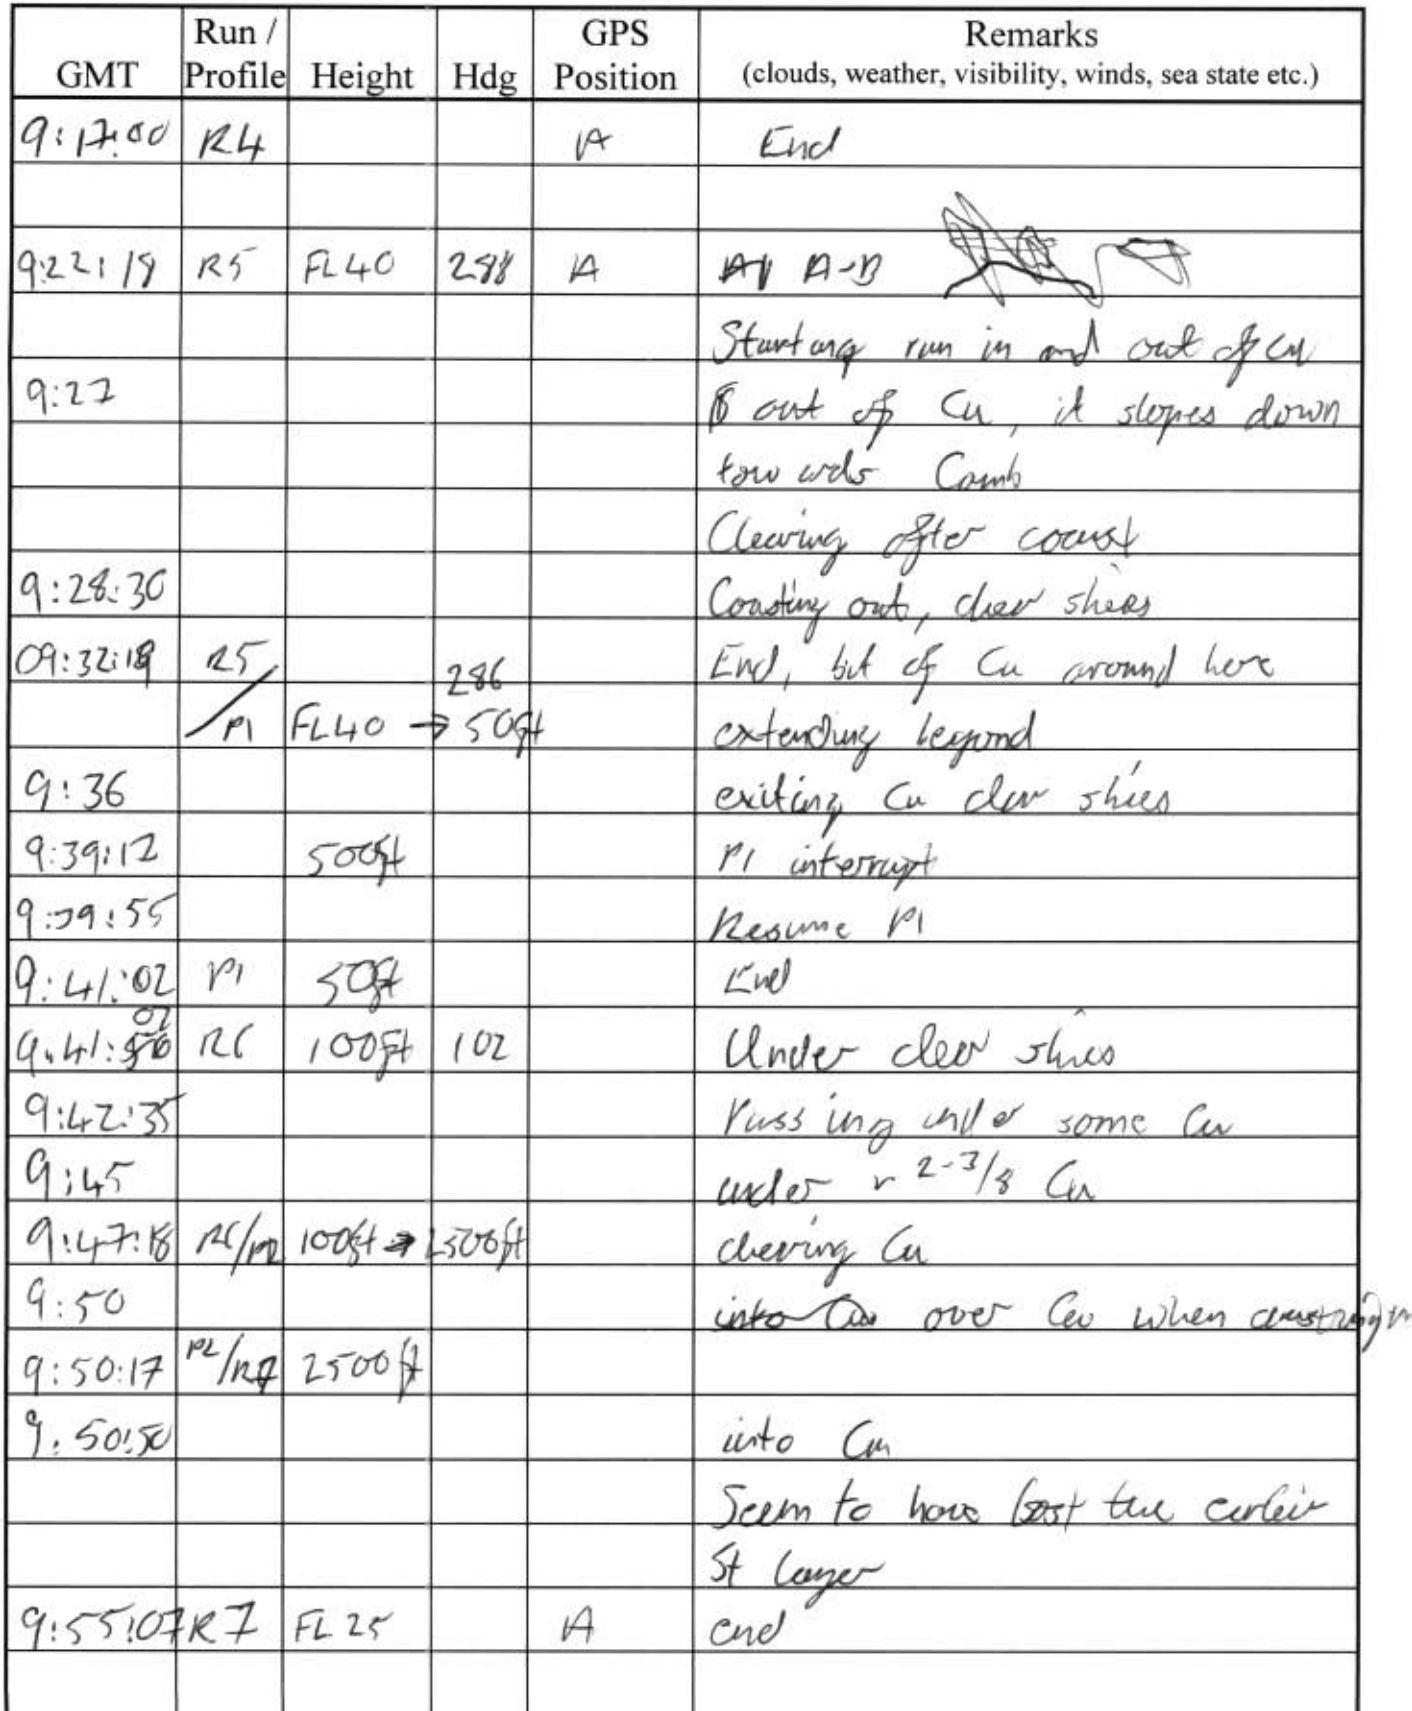 GMT Run / Profile Height Hdg GPS Position Remarks
(clouds, weather, visibility, winds, sea state etc.)
9:17:00 R4 A End
9:22:18 R5 FL40 288 A A-B
Starting run in and out of Cu
9:27 out of Cu, it slopes down
towards Camb
Clearing after coast
9:28:30 Coasting out, clear skies
09:32:18 R5 End, bit of Cu around here
286
/P1 FL40 → 50ft extending beyond
9:36 exiting Cu clear skies
9:39:12 500ft P1 interrupt
9:39:55 Resume P1
9:41:02 P1 50ft End
02
9:41: R6 100ft 102 Under clear skies
9:42:35 Passing under some Cu
9:45 under ~ 2-3/8 Cu
9:47:18 R6/P2 100ft → 2500ft clearing Cu
9:50 into Cu over Cu when coasting in
9:50:17 P2/R7 2500ft
9:50:50 into Cu
Seem to have lost the earlier
St layer
9:55:07 R7 FL25 A end